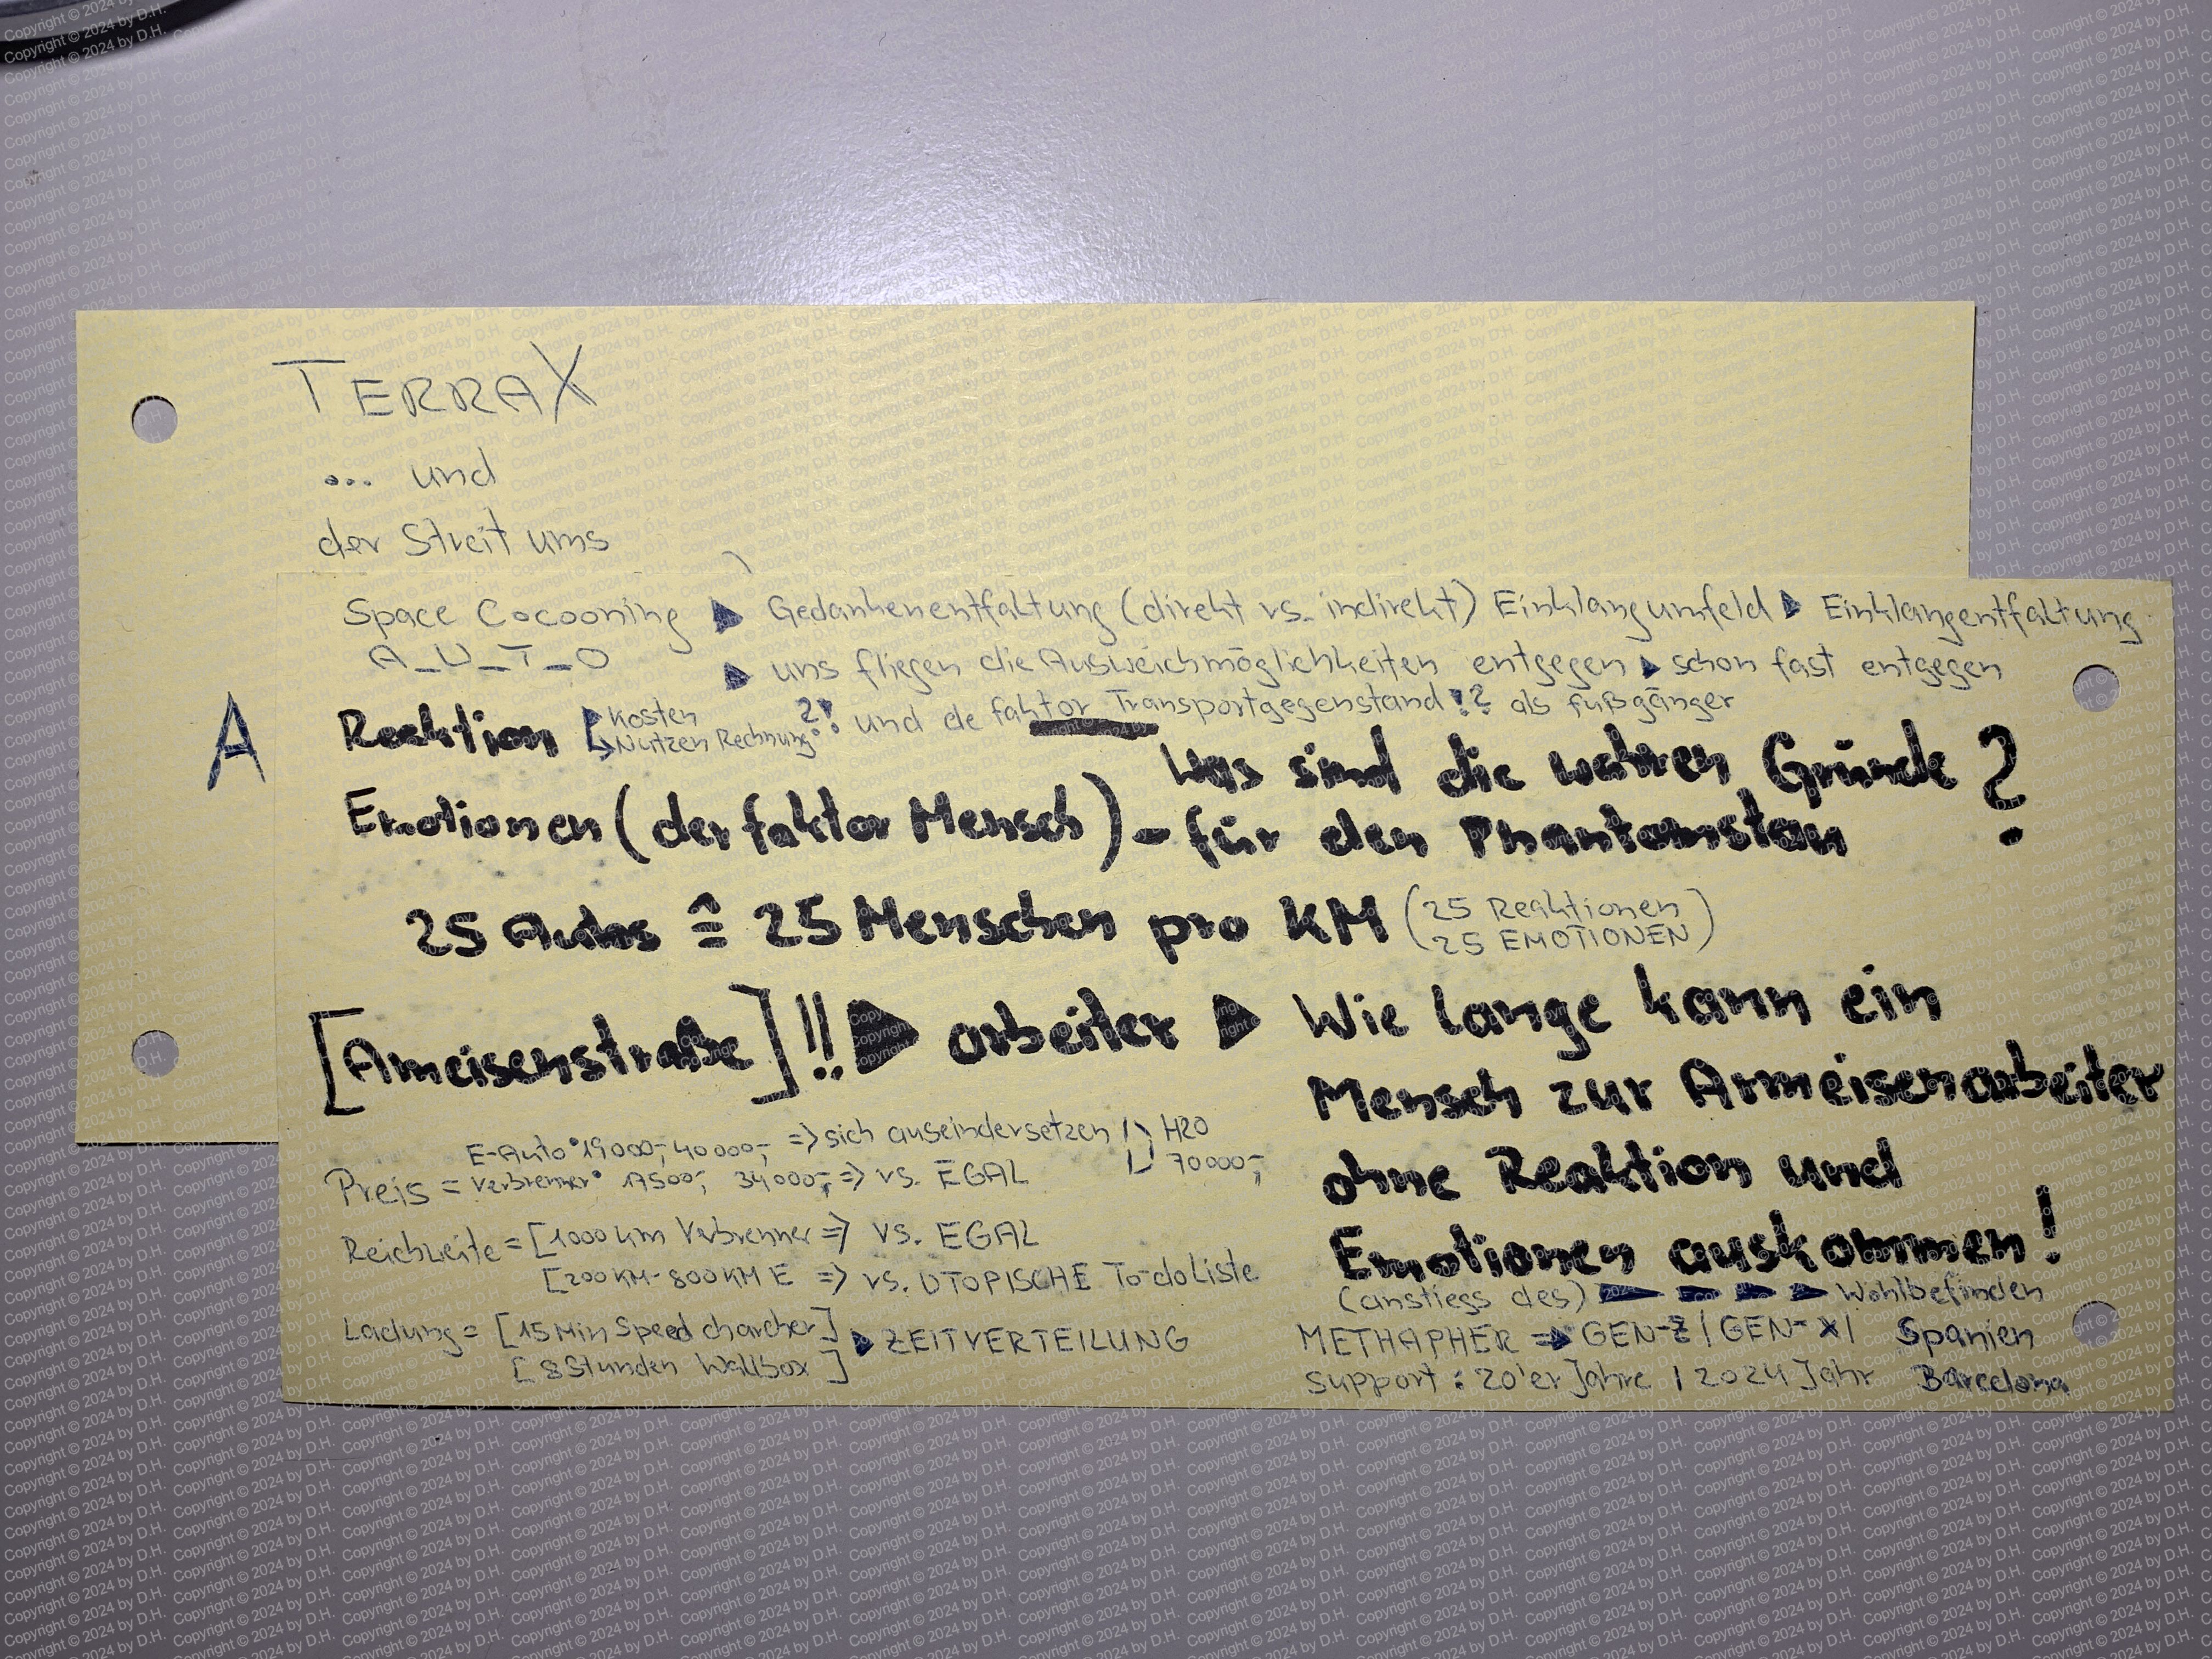 TERRA X
... und
der Streit ums
Space Cocooning ▶ Gedankenentfaltung (direkt vs. indirekt) Einklangumfeld ▶ Einklangentfaltung
A_U_T_O
▶ uns fliegen die Ausweichmöglichkeiten entgegen ▶ schon fast entgegen
A
Reaktion
Kosten
Nutzen Rechnung ?!
und de faktor Transportgegenstand!? als fußgänger
Was sind die wahren Gründe ?
Emotionen (der faktor Mensch) - für den Phantomstau
25 Autos ≙ 25 Menschen pro KM (25 Reaktionen
25 EMOTIONEN)
[Ameisenstraße]!! ▶ arbeiter ▶ Wie lange kann ein
Mensch zur Ameisenarbeiter
ohne Reaktion und
Emotionen auskommen!
(anstiegs des) Wohlbefinden
E-Auto 19000,- 40000,- => sich auseindersetzen
H2O
70000,-
Preis = Verbrenner 17500,- 34000,- => vs. EGAL
Reichweite = [1000 km Verbrenner => vs. EGAL
[200 KM - 800 KM E => vs. UTOPISCHE To-do Liste
Ladung = [15 Min Speed charcher]
[8 Stunden Wallbox]
▶ ZEITVERTEILUNG
METHAPHER => GEN-Z | GEN-X | Spanien
Support : 20'er Jahre | 2024 Jahr Barcelona
Copyright © 2024 by D.H.